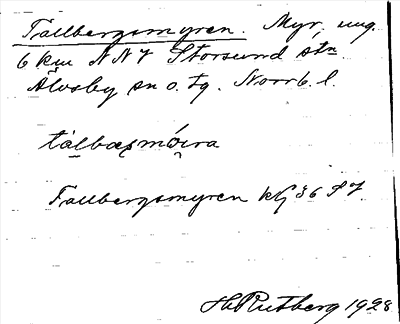 Tallbergsmyren. Myr, ung.
6 km NNV Storsund stn
Älvsby sn o. tg. Norrb. l.
tàlbæṣmó̤ira
Tallbergsmyren kbl 36 SV.
H. Rutberg 1928